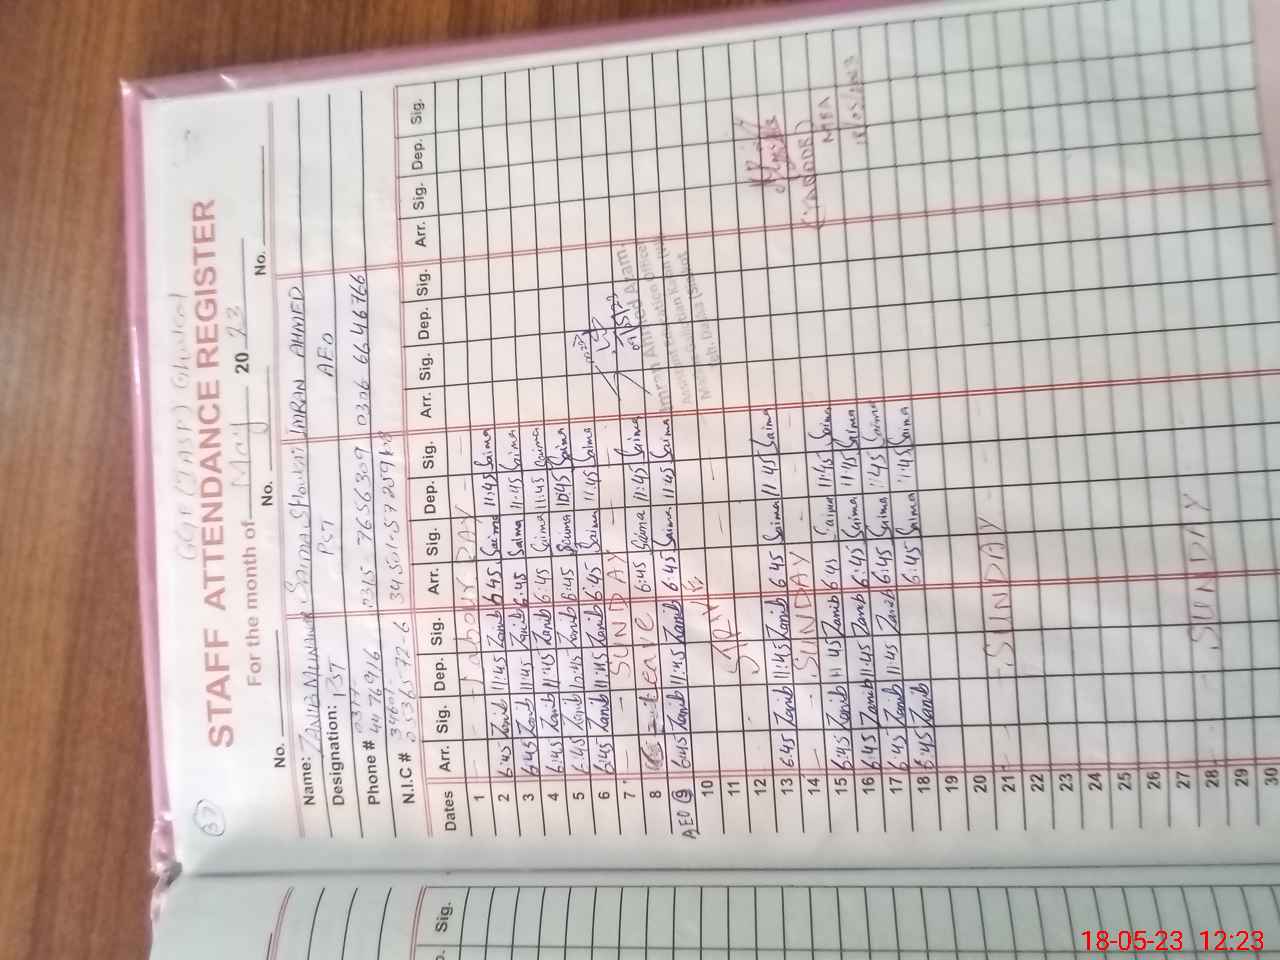 37
STAFF ATTENDANCE REGISTER
For the month of May 2023
No. No. No.
Name: SAIMA IMRAN AHMED
Designation: PCT AEO
Phone # 0315-7656309 0306 6646766
N.I.C #
Dates Arr. Sig. Dep. Sig. Arr. Sig. Dep. Sig. Arr. Sig. Dep. Sig. Arr. Sig. Dep. Sig.
1 Labour DAY
2 6:45 Zanib 11:45 Zanib 6:45 Saima 11:45 Saima
3 6:45 Zanib 11:45 Zanib 6:45 Saima 11:45 Saima
4 6:45 Zanib 11:45 Zanib 6:45 Saima 11:45 Saima
5 6:45 Zanib 10:45 Zanib 6:45 Saima 10:45 Saima
6 6:45 Zanib 11:45 Zanib 6:45 Saima 11:45 Saima
7 SUNDAY
8 leave 6:45 Saima 11:45 Saima
AEO 9 6:45 Zanib 11:45 Zanib 6:45 Saima 11:45 Saima
Imran Ahmed Azam
10
11
12
13 6:45 Zanib 11:45 Zanib 6:45 Saima 11:45 Saima
14 SUNDAY
15 6:45 Zanib 11:45 Zanib 6:45 Saima 11:45 Saima
MEA
16 6:45 Zanib 11:45 Zanib 6:45 Saima 11:45 Saima
18/05/2023
17 6:45 Zanib 11:45 Zanib 6:45 Saima 11:45 Saima
18 6:45 Zanib 6:45 Saima 11:45 Saima
19
20
21 SUNDAY
22
23
24
25
26
27
28 SUNDAY
29
30
Sig.
18-05-23 12:23